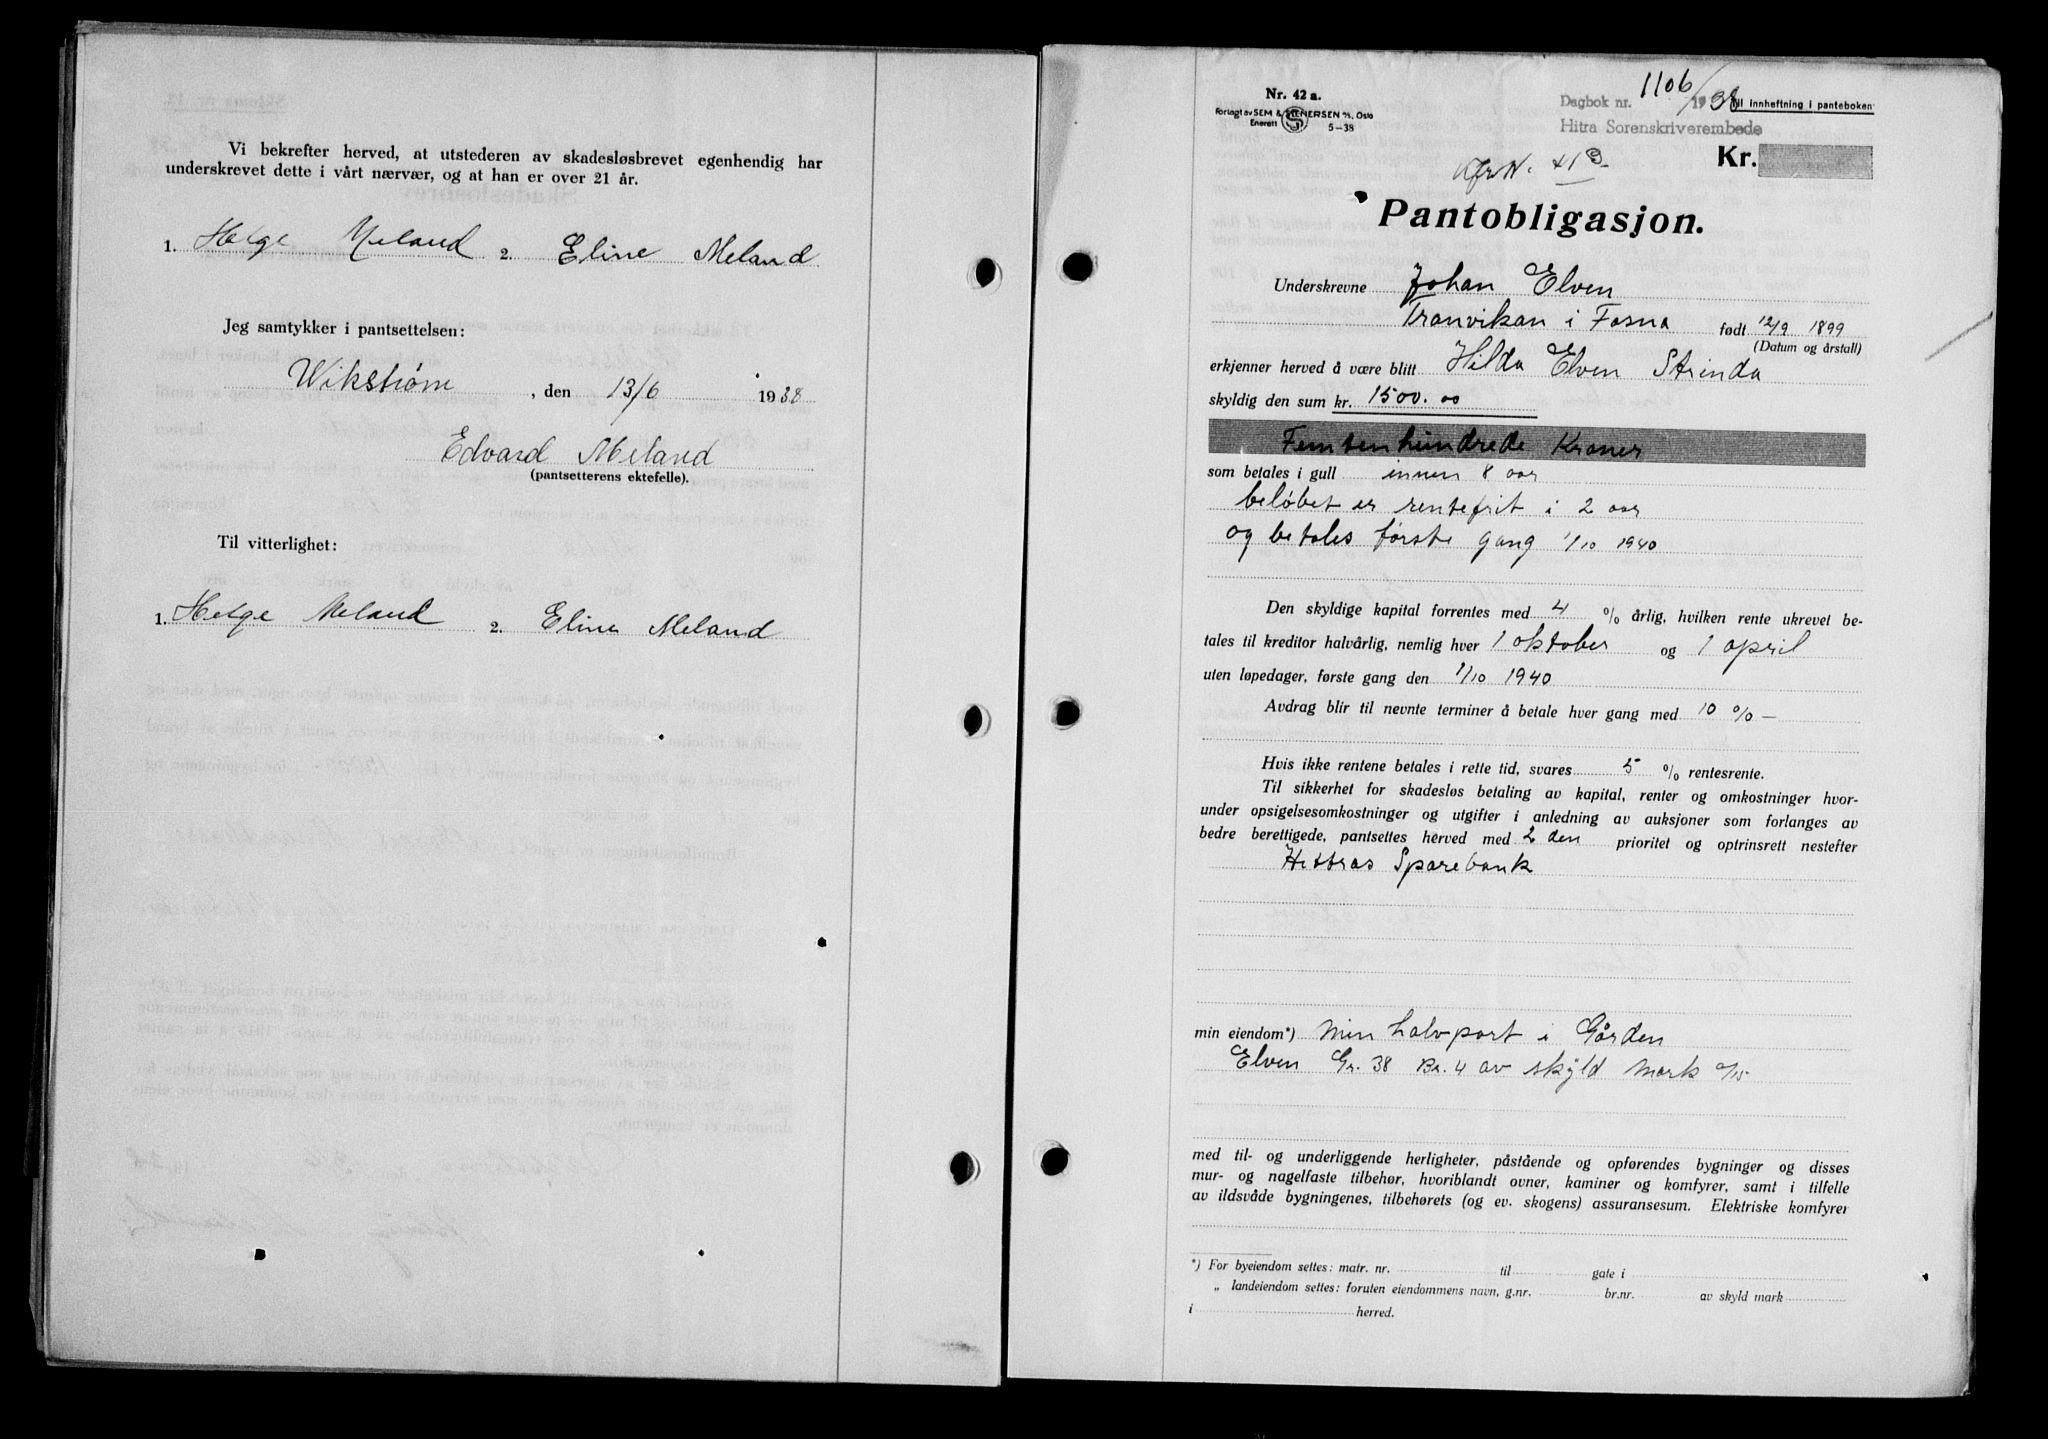 Vi bekrefter herved, at utstederen av skadesløsbrevet egenhendig har
underskrevet dette i vårt nærvær, og at han er over 21 år.
1. Helge Meland 2. Eline Meland
Jeg samtykker i pantsettelsen:
Wikstrøm, den 13/6 1938
Edvard Meland
(pantsetterens ektefelle).
Til vitterlighet:
1. Helge Meland 2. Eline Meland
Nr. 42 a.
Forlagt av SEM & STENERSEN A/S, Oslo
Enerett 5-38
Dagbok nr. 1106/1938 Til innheftning i panteboken
Hitra Sorenskriverembede
Kr.
Pantobligasjon.
Underskrevne Johan Elven
Tranvikan i Fosna født 12/9 1899
(Datum og årstall)
erkjenner herved å være blitt Hilda Elven Strinda
skyldig den sum kr. 1500.00
Femtenhundrede Kroner
som betales i gull innen 8 aar
beløbet er rentefrit i 2 aar
og betales første gang 1/10 1940
Den skyldige kapital forrentes med 4 % årlig, hvilken rente ukrevet be-
tales til kreditor halvårlig, nemlig hver 1 oktober og 1 april
uten løpedager, første gang den 1/10 1940
Avdrag blir til nevnte terminer å betale hver gang med 10 % —
Hvis ikke rentene betales i rette tid, svares 5 % rentesrente.
Til sikkerhet for skadesløs betaling av kapital, renter og omkostninger hvor-
under opsigelsesomkostninger og utgifter i anledning av auksjoner som forlanges av
bedre berettigede, pantsettes herved med 2 den prioritet og optrinsrett nestefter
Hittras Sparebank
min eiendom*) min halvport i Gården
Elven Gr. 38 Br. 4 av skyld Mark 0/15
med til- og underliggende herligheter, påstående og opførendes bygninger og disses
mur- og nagelfaste tilbehør, hvoriblandt ovner, kaminer og komfyrer, samt i tilfelle
av ildsvåde bygningenes, tilbehørets (og ev. skogens) assuransesum. Elektriske komfyrer
*) For byeiendom settes: matr. nr. til gate i
„ landeiendom settes: foruten eiendommens navn, g.nr. br.nr. av skyld mark
i herred.